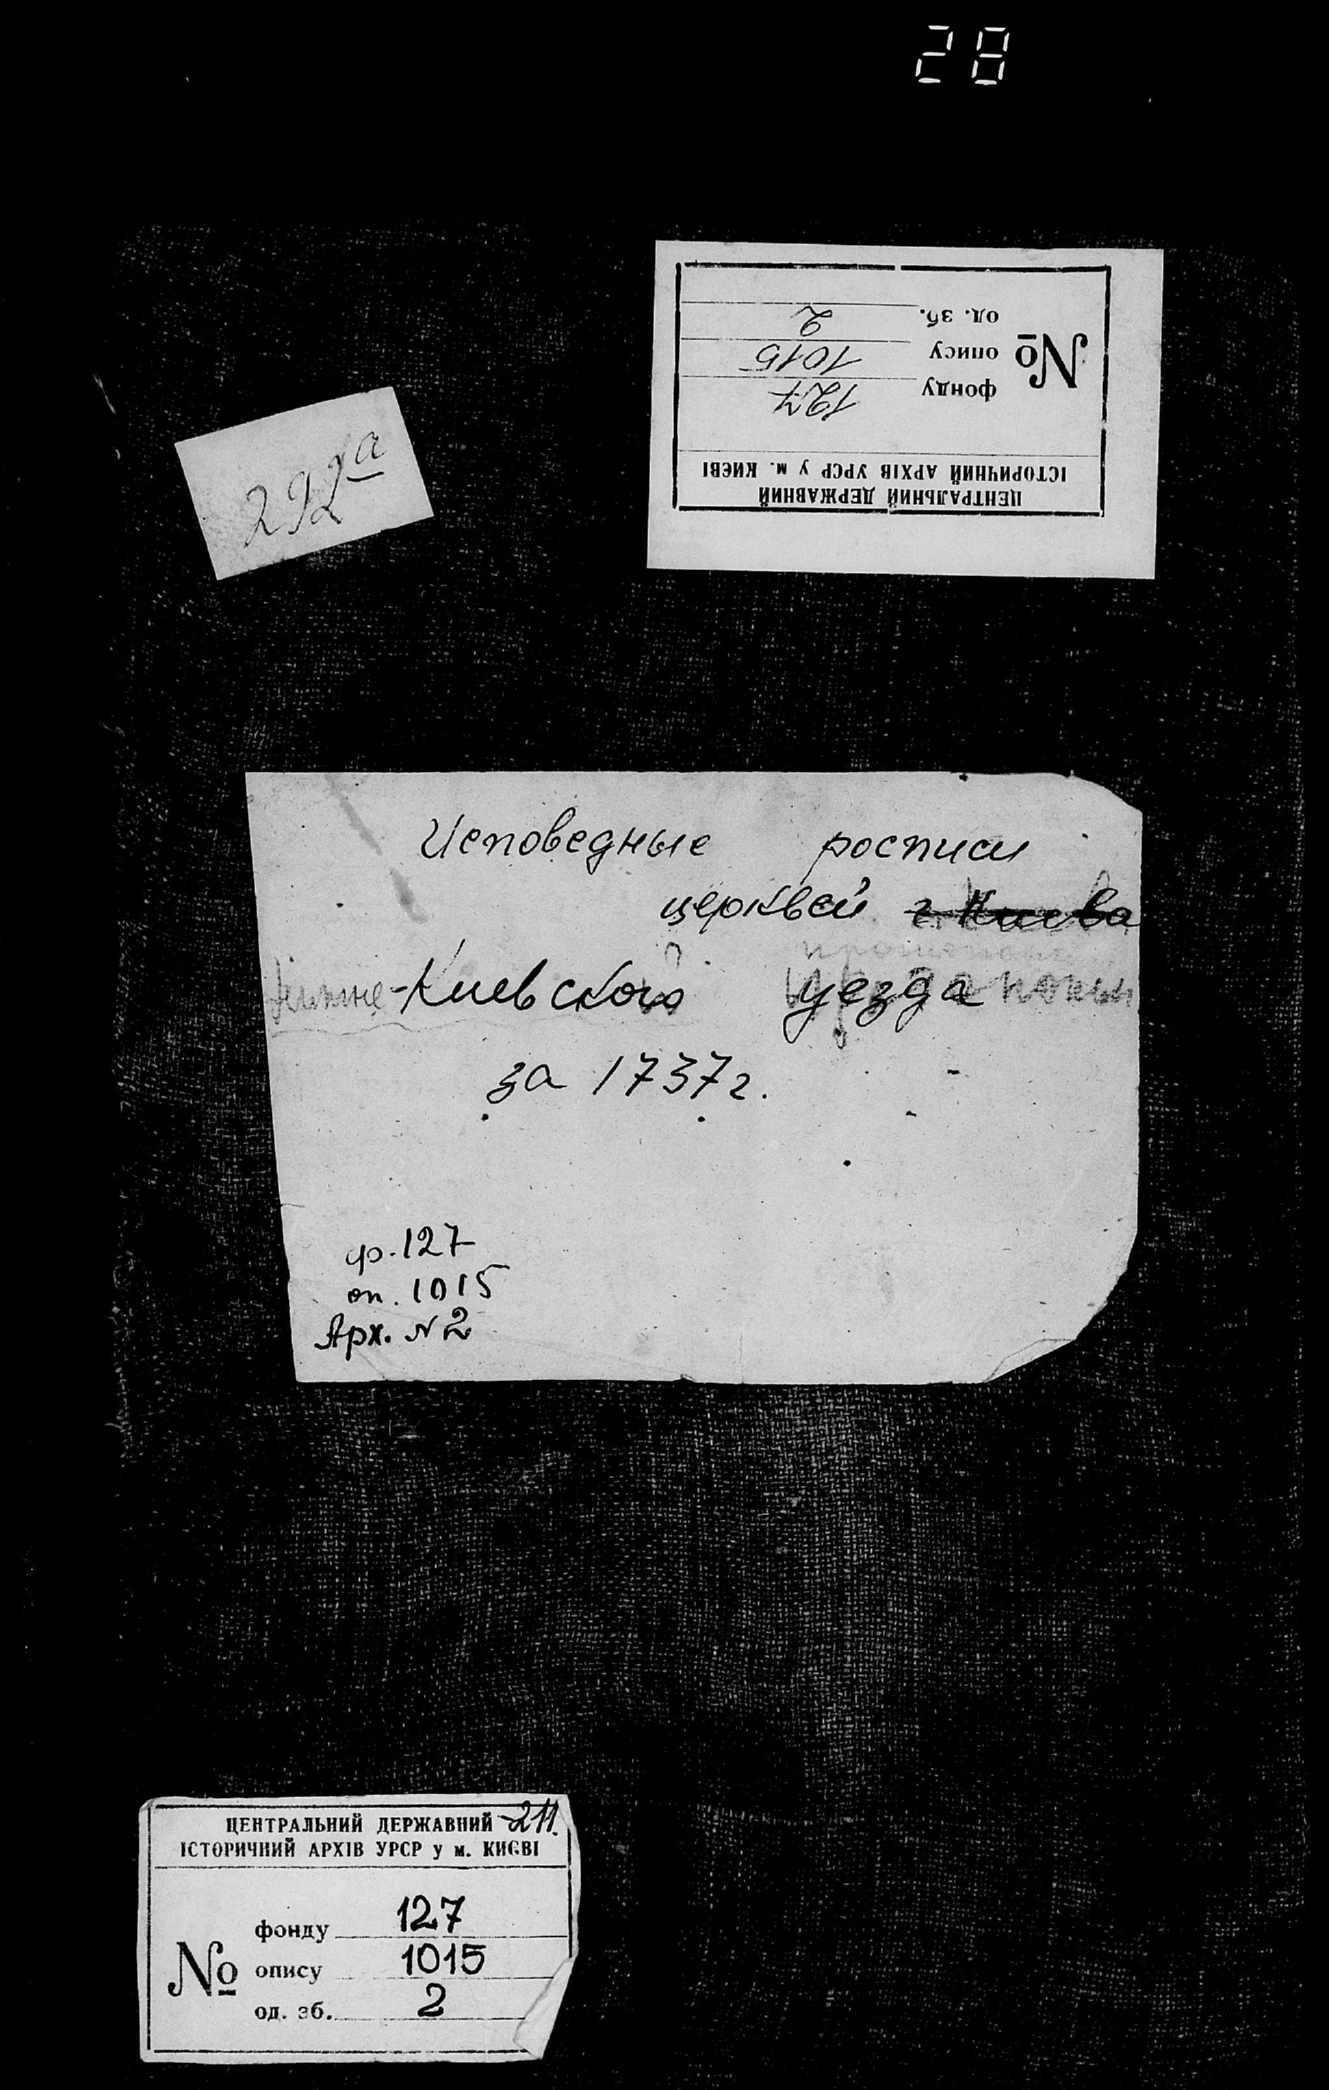 28
ЦЕНТРАЛЬНИЙ ДЕРЖАВНИЙ
ІСТОРИЧНИЙ АРХІВ УРСР у м. КИЄВІ
№
фонду 127
опису 1015
од. зб. 2
292а
Исповедные росписи
церквей г. Киева
Киевского уезда
за 1737г.
ф. 127
оп. 1015
Арх. N 2
ЦЕНТРАЛЬНИЙ ДЕРЖАВНИЙ 211.
ІСТОРИЧНИЙ АРХІВ УРСР у м. КИЄВІ
№
фонду 127
опису 1015
од. зб. 2